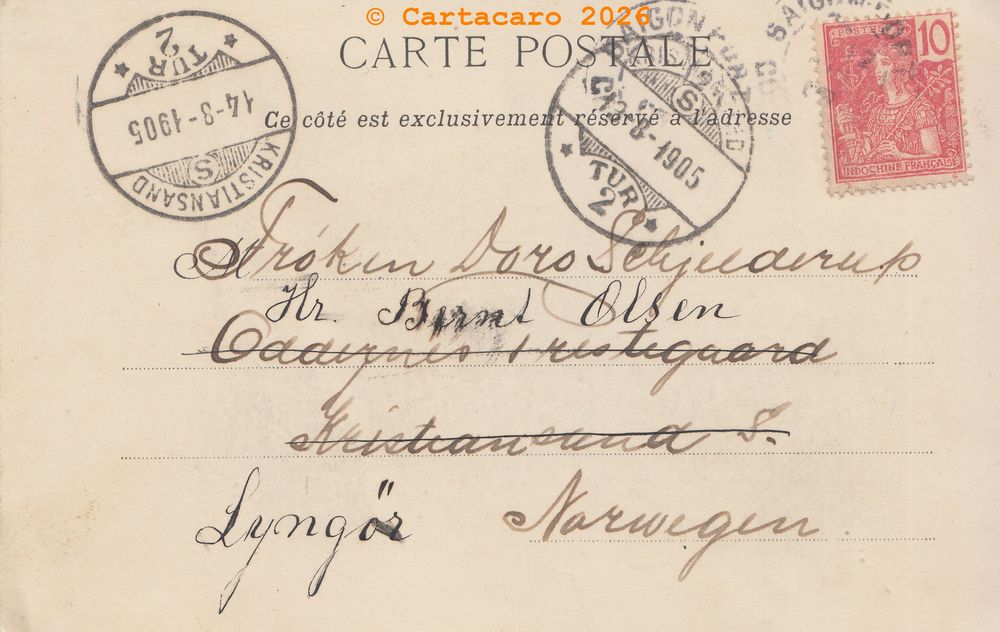 © Cartacaro 2026
CARTE POSTALE
Ce côté est exclusivement réservé à l'adresse
POSTES 10
INDOCHINE FRANÇAISE
TUR
2
14-8-1905
KRISTIANSAND
S
S
-8-1905
TUR
2
SAIGON
SAIGON
Frøken Doro Schjelderup
Hr. Bernt Olsen
Oddernes Prestegaard
Kristiansand S.
Lyngör Norwegen